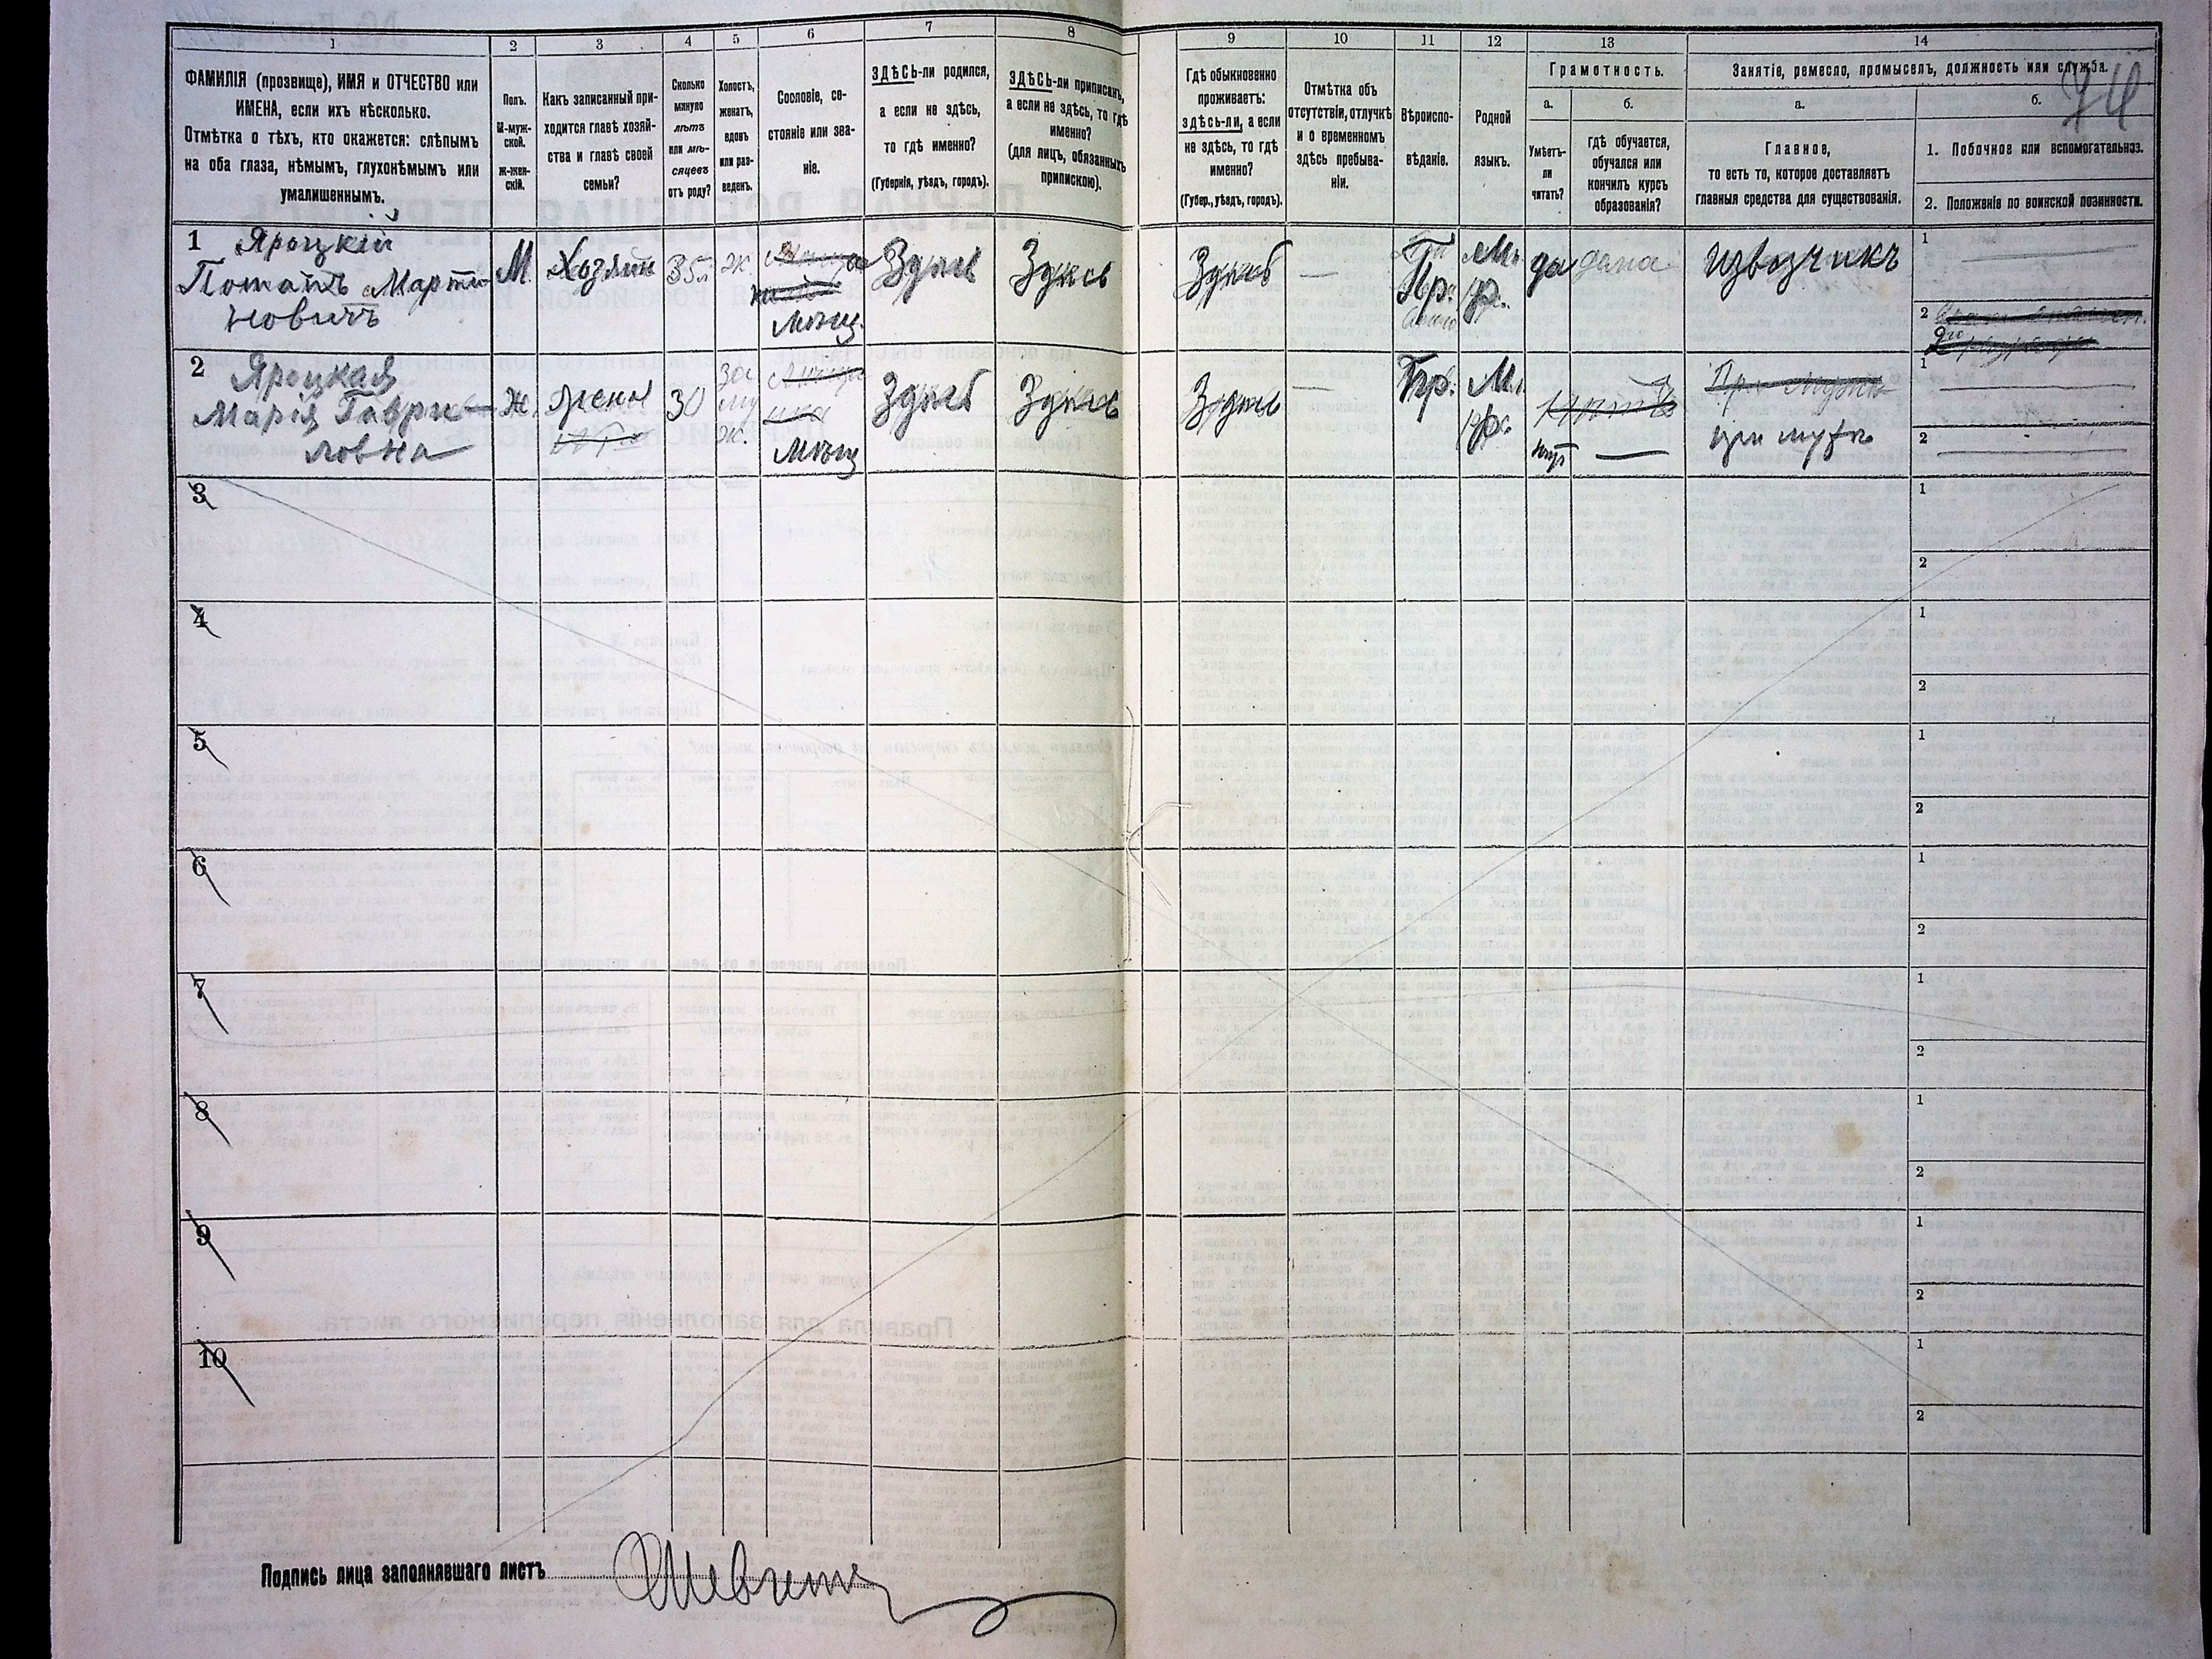 1
2
3
4
5
6
7
8
9
10
11
12
13
14
ФАМИЛІЯ (прозвище), ИМЯ и ОТЧЕСТВО или
ИМЕНА, если ихъ нѣсколько.
Отмѣтка о тѣхъ, кто окажется: слѣпымъ
на оба глаза, нѣмымъ, глухонѣмымъ или
умалишеннымъ.
Полъ.
М-муж-
ской.
Ж-жен-
скій.
Какъ записанный при-
ходится главѣ хозяй-
ства и главѣ своей
семьи?
Сколько
минуло
лѣтъ
или мѣ-
сяцевъ
отъ роду?
Холостъ,
женатъ,
вдовъ
или раз-
веденъ.
Сословіе, со-
стояніе или зва-
ніе.
ЗДѢСЬ-ли родился,
а если не здѣсь,
то гдѣ именно?
(Губернія, уѣздъ, городъ).
ЗДѢСЬ-ли приписанъ,
а если не здѣсь, то гдѣ
именно?
(для лицъ, обязанныхъ
припискою).
Гдѣ обыкновенно
проживаетъ:
здѣсь-ли, а если
не здѣсь, то гдѣ
именно?
(Губер., уѣздъ, городъ).
Отмѣтка объ
отсутствіи, отлучкѣ
и о временномъ
здѣсь пребыва-
ніи.
Вѣроиспо-
вѣданіе.
Родной
языкъ.
Грамотность.
а.
б.
Умѣетъ-
ли
читать?
гдѣ обучается,
обучался или
кончилъ курсъ
образованія?
Занятіе, ремесло, промыселъ, должность или служба.
а.
б.
Главное,
то есть то, которое доставляетъ
главныя средства для существованія.
1. Побочное или вспомогательное.
2. Положеніе по воинской повинности.
1 Яроцкій
Мартино
новичъ
М
Хозяин
35
ж.
мѣщ.
Здѣсь
Здѣсь
Здѣсь
—
Пр.
М.
р.
да
дома
извозчикъ
1
2
2 Яроцкая
Марія Гаври
ловна
Ж.
жена
30
за
му
ж.
мѣщ
Здѣсь
Здѣсь
Здѣсь
—
Пр.
М.
р.
нѣт
—
при мужѣ
1
2
3
1
2
4
1
2
5
1
2
6
1
2
7
1
2
8
1
2
9
1
2
10
1
2
Подпись лица заполнявшаго листъ